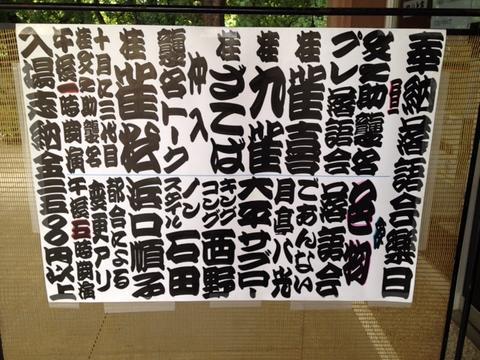 奉納落語会
文之助襲名
プレ落語会
桂 雀喜
桂 九雀
桂 ざこば
仲入
襲名トーク
桂 雀松
十月に三代目
桂文之助襲名
午後一時開演
色物
落語会
ごあんない
月亭八光
大平サブロー
キングコング 西野
ノンスタイル 石田
浜口順子
都合による
変更アリ
午後五時開演
入場志納金 円以上